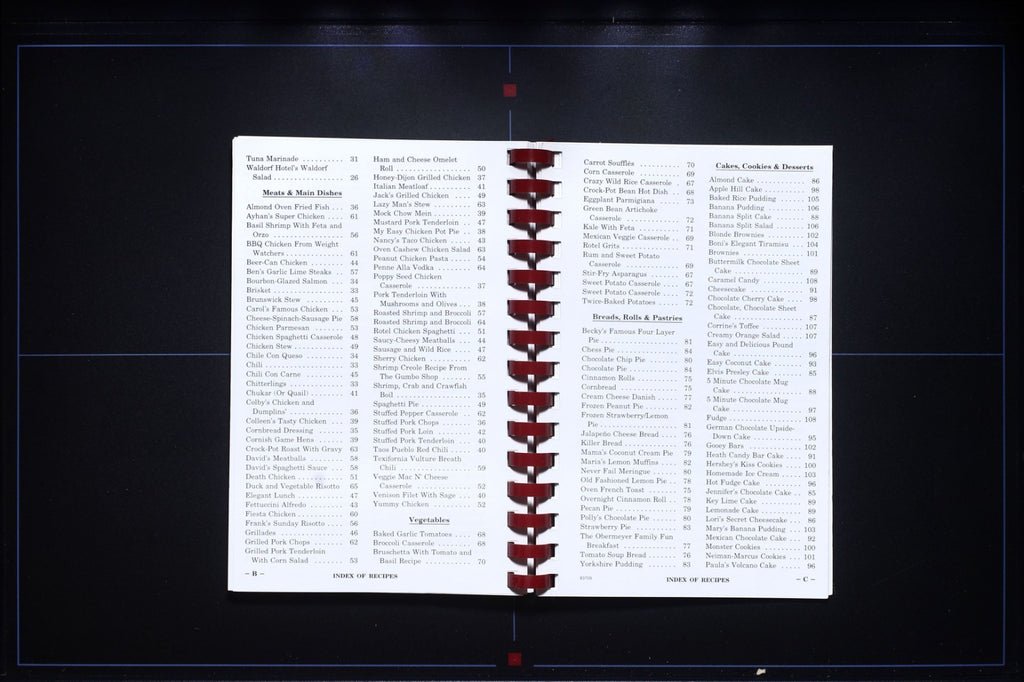 Tuna Marinade .......... 31
Waldorf Hotel's Waldorf
Salad .................. 26
Meats & Main Dishes
Almond Oven Fried Fish .... 36
Ayhan's Super Chicken ..... 61
Basil Shrimp With Feta and
Orzo .................. 56
BBQ Chicken From Weight
Watchers .............. 61
Beer-Can Chicken .......... 44
Ben's Garlic Lime Steaks ... 57
Bourbon-Glazed Salmon .... 34
Brisket ................... 33
Brunswick Stew ........... 45
Carol's Famous Chicken .... 53
Cheese-Spinach-Sausage Pie 58
Chicken Parmesan ......... 53
Chicken Spaghetti Casserole 48
Chicken Stew .............. 49
Chile Con Queso .......... 34
Chili ..................... 33
Chili Con Carne ........... 45
Chitterlings ............... 33
Chukar (Or Quail) ......... 41
Colby's Chicken and
Dumplins' ............. 36
Colleen's Tasty Chicken .... 39
Cornbread Dressing ........ 35
Cornish Game Hens ........ 39
Crock-Pot Roast With Gravy 63
David's Meatballs .......... 58
David's Spaghetti Sauce .... 58
Death Chicken ............. 51
Duck and Vegetable Risotto 65
Elegant Lunch ............. 47
Fettuccini Alfredo ......... 43
Fiesta Chicken ............ 60
Frank's Sunday Risotto .... 56
Grillades .................. 46
Grilled Pork Chops ........ 62
Grilled Pork Tenderloin
With Corn Salad ........ 53
– B – INDEX OF RECIPES
Ham and Cheese Omelet
Roll ................... 50
Honey-Dijon Grilled Chicken 37
Italian Meatloaf ............ 41
Jack's Grilled Chicken ...... 49
Lazy Man's Stew ........... 63
Mock Chow Mein .......... 39
Mustard Pork Tenderloin ... 47
My Easy Chicken Pot Pie .. 38
Nancy's Taco Chicken ...... 43
Oven Cashew Chicken Salad 63
Peanut Chicken Pasta ...... 54
Penne Alla Vodka .......... 64
Poppy Seed Chicken
Casserole .............. 37
Pork Tenderloin With
Mushrooms and Olives ... 38
Roasted Shrimp and Broccoli 57
Roasted Shrimp and Broccoli 64
Rotel Chicken Spaghetti .... 51
Saucy-Cheesy Meatballs .... 44
Sausage and Wild Rice ..... 47
Sherry Chicken ............ 62
Shrimp Creole Recipe From
The Gumbo Shop ....... 55
Shrimp, Crab and Crawfish
Boil ................... 35
Spaghetti Pie .............. 49
Stuffed Pepper Casserole ... 62
Stuffed Pork Chops ........ 36
Stuffed Pork Loin .......... 42
Stuffed Pork Tenderloin .... 40
Taos Pueblo Red Chili ...... 40
Texifornia Vulture Breath
Chili ................... 59
Veggie Mac N' Cheese
Casserole .............. 52
Venison Filet With Sage .... 40
Yummy Chicken ........... 52
Vegetables
Baked Garlic Tomatoes .... 68
Broccoli Casserole .......... 68
Bruschetta With Tomato and
Basil Recipe ............ 70
Carrot Soufflés ............ 70
Corn Casserole ............ 69
Crazy Wild Rice Casserole .. 67
Crock-Pot Bean Hot Dish .. 68
Eggplant Parmigiana ....... 73
Green Bean Artichoke
Casserole .............. 72
Kale With Feta ............ 71
Mexican Veggie Casserole .. 69
Rotel Grits ................ 71
Rum and Sweet Potato
Casserole .............. 69
Stir-Fry Asparagus ......... 67
Sweet Potato Casserole ..... 67
Sweet Potato Casserole ..... 72
Twice-Baked Potatoes ...... 72
Breads, Rolls & Pastries
Becky's Famous Four Layer
Pie .................... 81
Chess Pie ................. 84
Chocolate Chip Pie ........ 80
Chocolate Pie .............. 84
Cinnamon Rolls ............ 75
Cornbread ................ 75
Cream Cheese Danish ...... 77
Frozen Peanut Pie ......... 82
Frozen Strawberry/Lemon
Pie .................... 81
Jalapeño Cheese Bread ..... 76
Killer Bread ............... 76
Mama's Coconut Cream Pie 79
Maria's Lemon Muffins .... 82
Never Fail Meringue ....... 80
Old Fashioned Lemon Pie .. 78
Oven French Toast ......... 75
Overnight Cinnamon Roll .. 78
Pecan Pie ................. 79
Polly's Chocolate Pie ....... 80
Strawberry Pie ............ 83
The Obermeyer Family Fun
Breakfast .............. 77
Tomato Soup Bread ........ 76
Yorkshire Pudding ......... 83
INDEX OF RECIPES – C –
Cakes, Cookies & Desserts
Almond Cake .............. 86
Apple Hill Cake ............ 98
Baked Rice Pudding ....... 105
Banana Pudding ........... 106
Banana Split Cake ......... 88
Banana Split Salad ........ 106
Blonde Brownies ........... 102
Boni's Elegant Tiramisu .... 104
Brownies .................. 101
Buttermilk Chocolate Sheet
Cake ................... 89
Caramel Candy ............ 108
Cheesecake ................ 91
Chocolate Cherry Cake ..... 98
Chocolate, Chocolate Sheet
Cake ................... 87
Corrine's Toffee ............ 107
Creamy Orange Salad ...... 107
Easy and Delicious Pound
Cake ................... 96
Easy Coconut Cake ........ 93
Elvis Presley Cake ......... 85
5 Minute Chocolate Mug
Cake ................... 88
5 Minute Chocolate Mug
Cake ................... 97
Fudge ..................... 108
German Chocolate Upside-
Down Cake ............. 95
Gooey Bars ................ 102
Heath Candy Bar Cake .... 91
Hershey's Kiss Cookies ..... 100
Homemade Ice Cream ..... 103
Hot Fudge Cake ........... 96
Jennifer's Chocolate Cake .. 85
Key Lime Cake ............ 89
Lemonade Cake ........... 89
Lori's Secret Cheesecake .... 86
Mary's Banana Pudding .... 103
Mexican Chocolate Cake ... 92
Monster Cookies ........... 100
Neiman-Marcus Cookies .... 101
Paula's Volcano Cake ...... 96